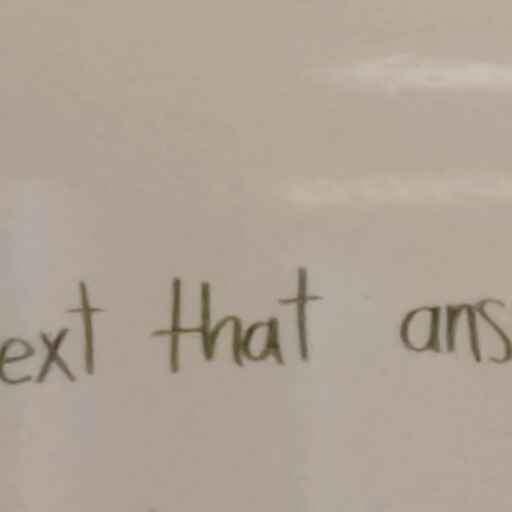 ext that ans